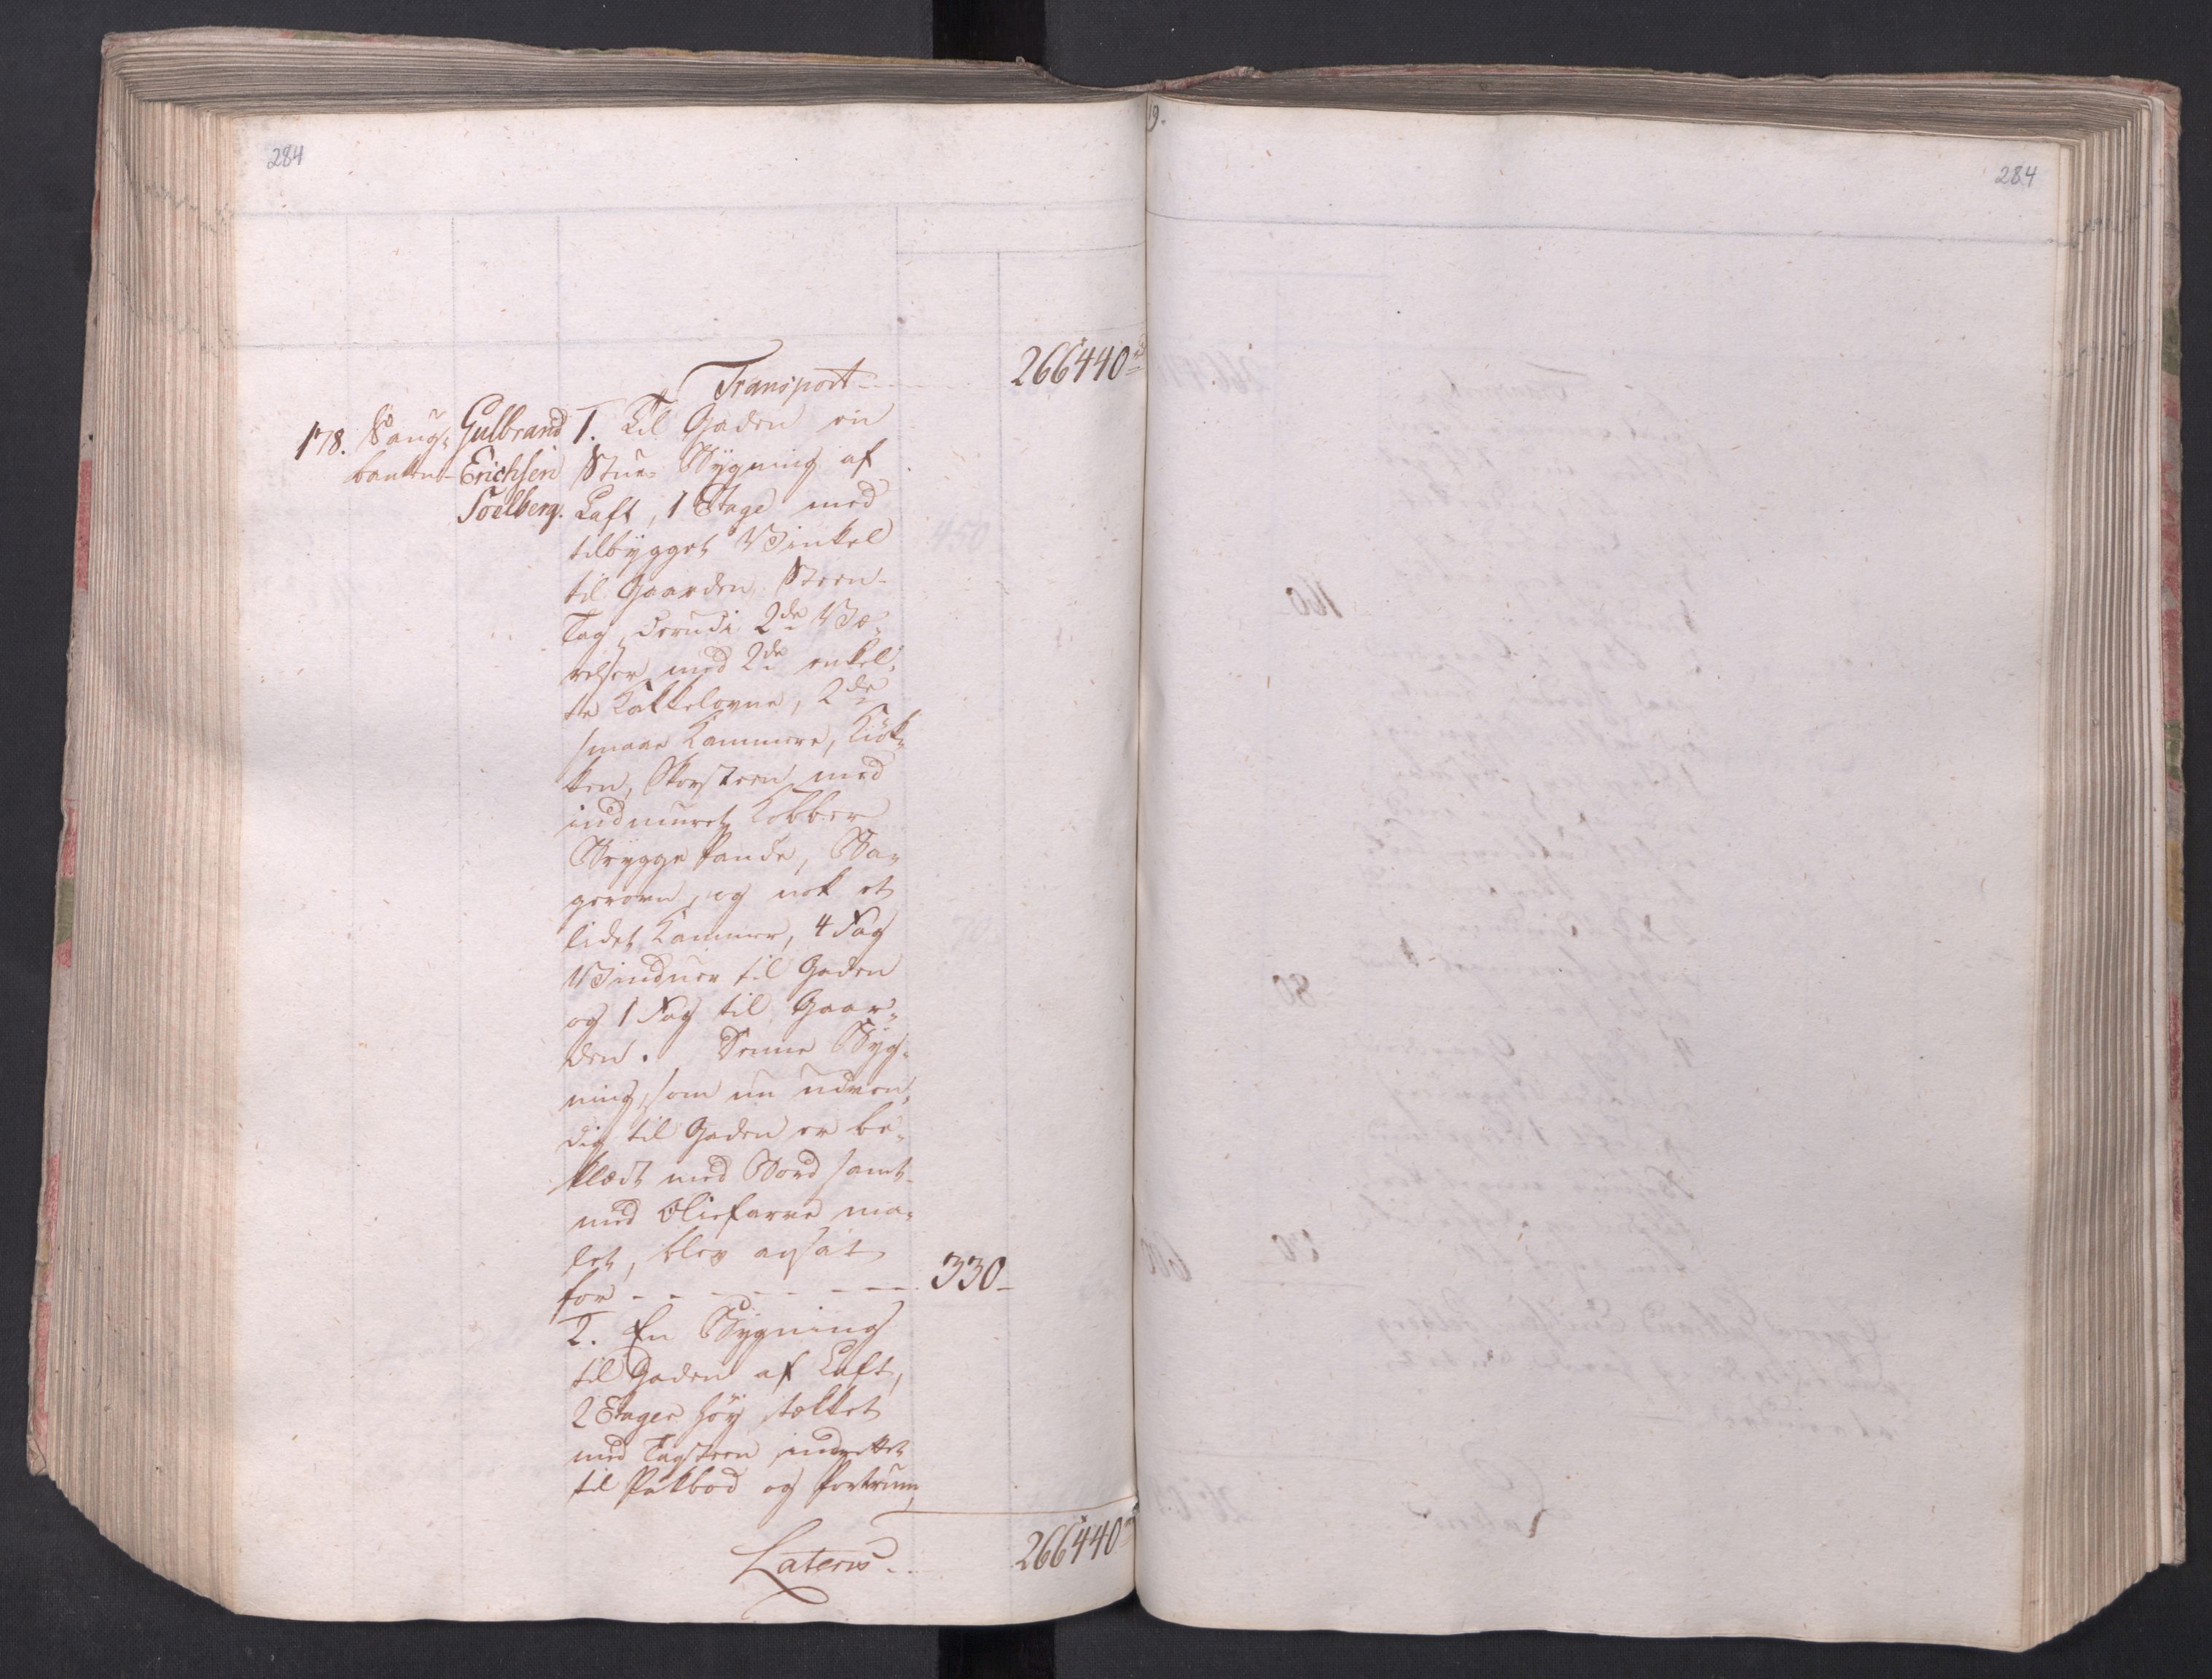 284
19.
284
Transport - - 266440
178. Saug= Gulbrand 1. Til Gaden en
banken Erichsen Stue= Bygning af
Toelberg. Laft, 1 Etage med
tilbygget Vinkel
til Gaarden, Steen-
Tag, derudi 2de Væ=
relser med 2de enkel=
te Kakkelovne, 2de
smaae Kammere, Kiøk=
ken, Skorsteen med
indmuret Kobber
Brygge Pande, Ba=
gerovn, og nok et
lidet Kammer, 4 Fag
Vinduer til Gaden
og 1 Fag til Gaar=
den. Denne Byg=
ning, som nu udven=
dig til Gaden er be=
klædt med Bord samt
med Oliefarve ma=
let, blev ansat
for - - - - - - - 330 -
2. En Bygning
til Gaden af Laft,
2 Etager høy, tækket
med Tagsteen indrettet
til Pakbod og Portrum,
Lateris - . 266440